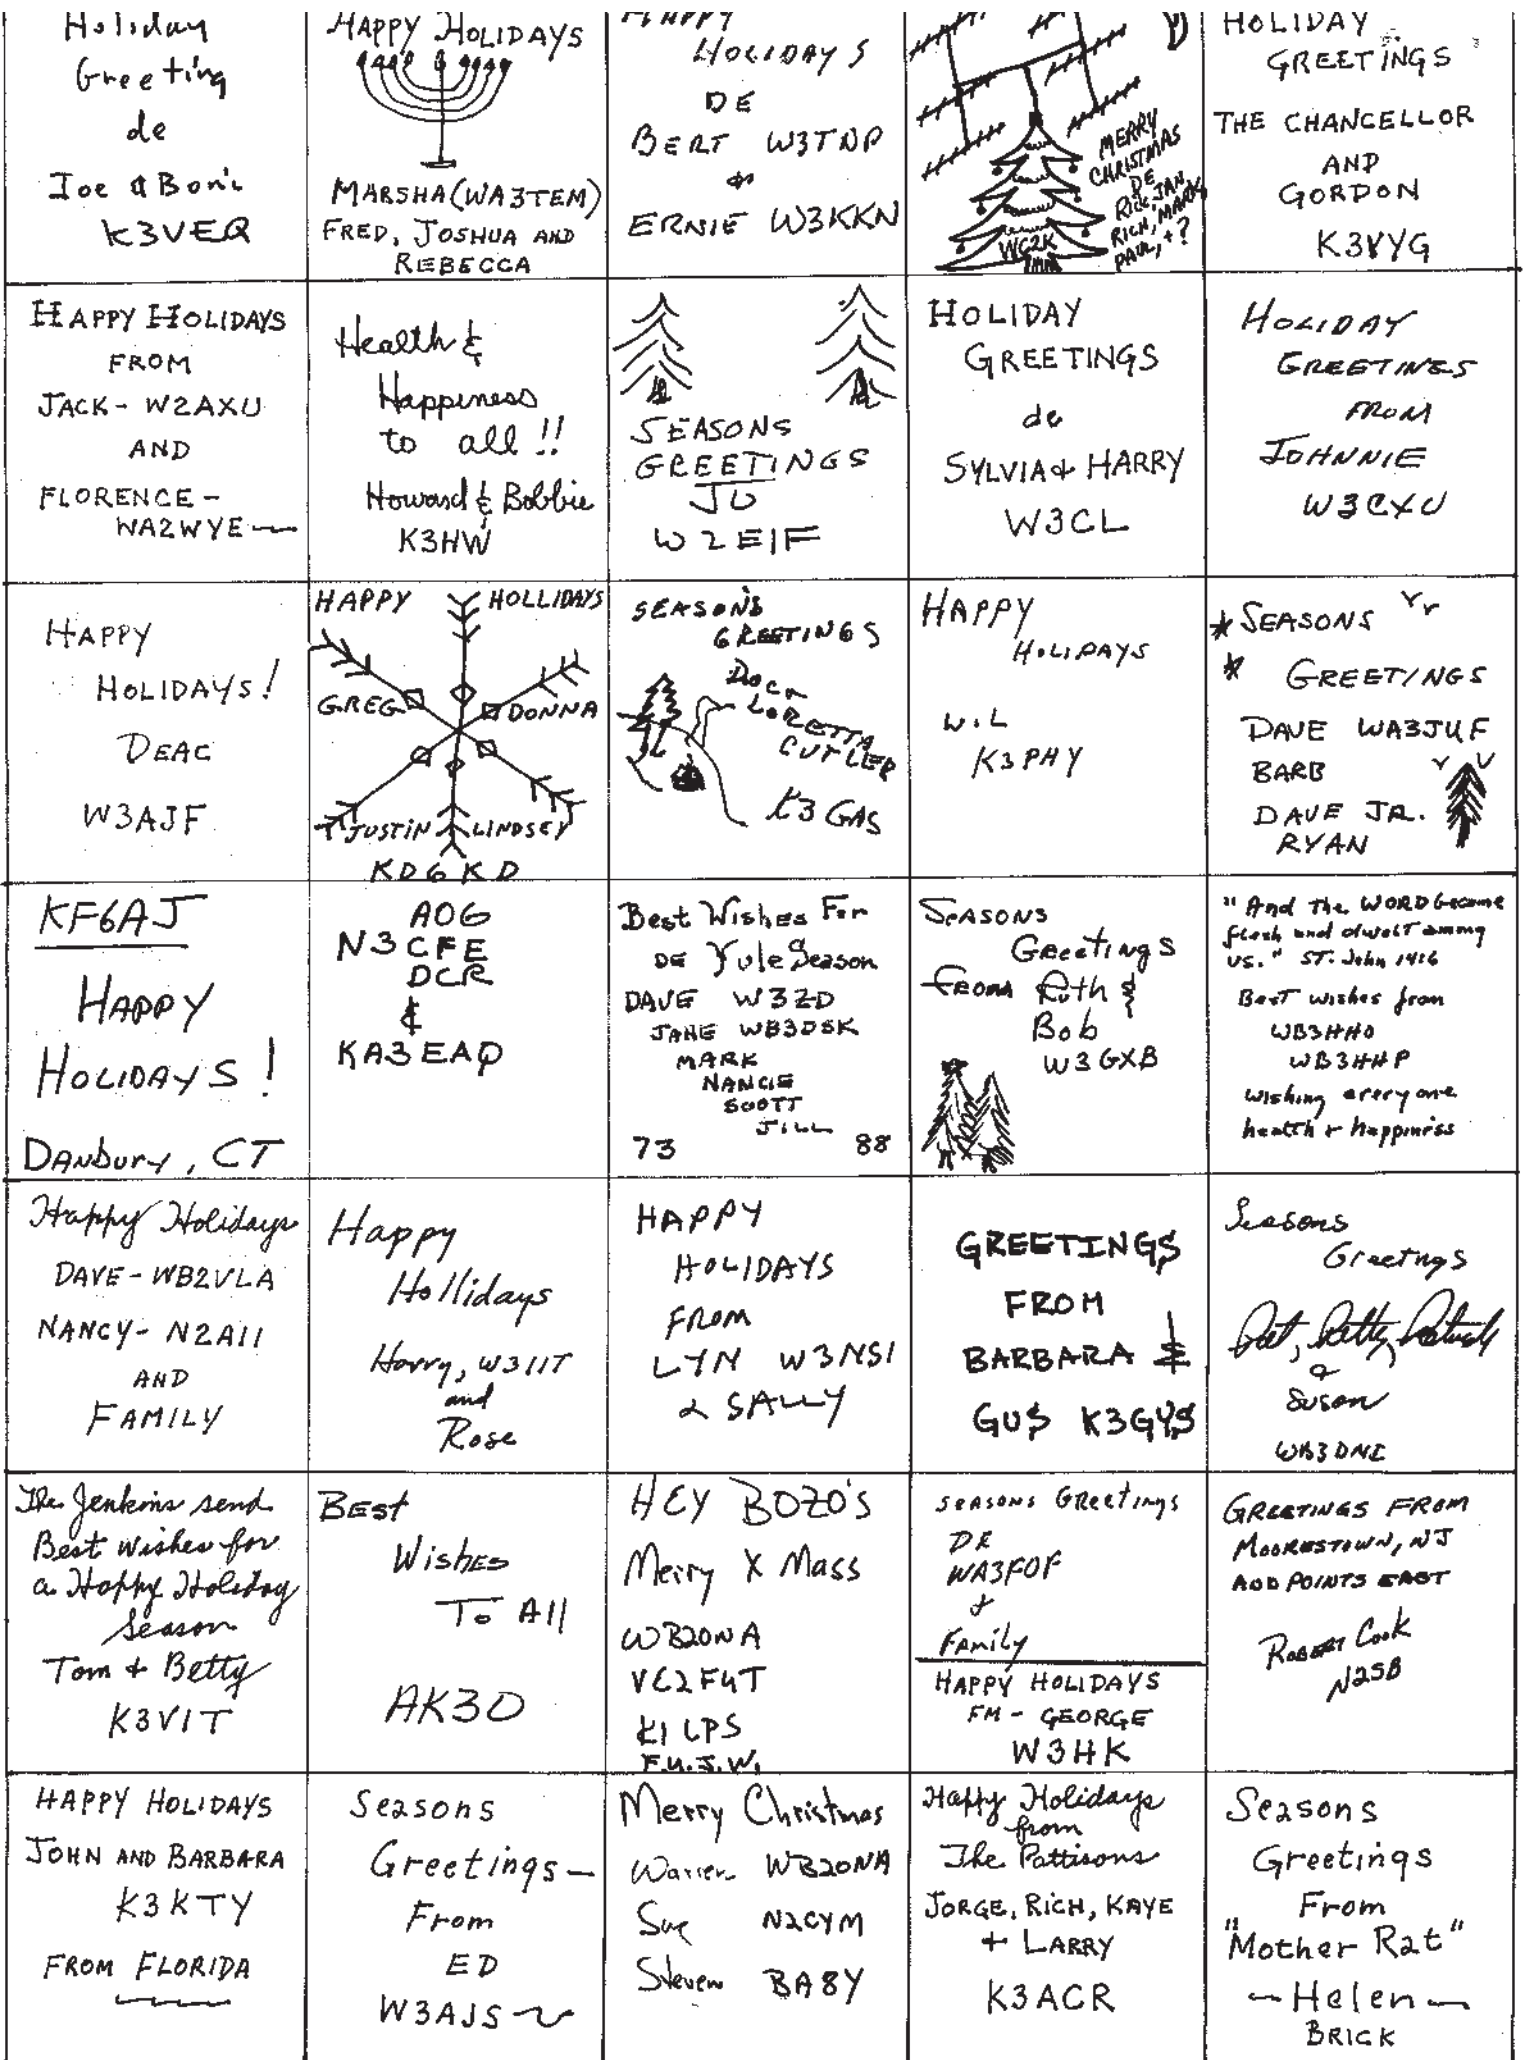 Holiday
Greeting
de
Joe & Boni
K3VEQ
HAPPY HOLIDAYS
MARSHA (WA3TEM)
FRED, JOSHUA AND
REBECCA
HAPPY
HOLIDAYS
DE
BERT W3TNP
&
ERNIE W3KKN
MERRY
CHRISTMAS
DE
RICK, JAN,
RICH, MARK,
PAUL, + ?
WC2K
HOLIDAY
GREETINGS
THE CHANCELLOR
AND
GORDON
K3VYG
HAPPY HOLIDAYS
FROM
JACK - W2AXU
AND
FLORENCE -
WA2WYE
Health &
Happiness
to all !!
Howard & Bobbie
K3HW
SEASONS
GREETINGS
JU
W2EIF
HOLIDAY
GREETINGS
de
SYLVIA & HARRY
W3CL
HOLIDAY
GREETINGS
FROM
JOHNNIE
W3CXU
HAPPY
HOLIDAYS!
DEAC
W3AJF
HAPPY HOLLIDAYS
GREG DONNA
JUSTIN LINDSEY
KD6KD
SEASON'S
GREETINGS
LORETTA
CUTLER
K3GAS
HAPPY
HOLIDAYS
WIL
K3PHY
SEASONS
GREETINGS
DAVE WA3JUF
BARB
DAVE JR.
RYAN
KF6AJ
HAPPY
HOLIDAYS!
Danbury, CT
AOG
N3CFE
DCR
&
KA3EAQ
Best Wishes For
DE Yule Season
DAVE W3ZD
JANE WB3DSK
MARK
NANCIE
SCOTT
JILL
73 88
SEASONS
Greetings
FROM Ruth &
Bob
W3GXB
"And the WORD became
flesh and dwelt among
us." ST. John 1416
Best wishes from
WB3HHO
WB3HHP
wishing everyone
health + happiness
Happy Holidays
DAVE - WB2VLA
NANCY - N2AII
AND
FAMILY
Happy
Hollidays
Harry, W3IIT
and
Rose
HAPPY
HOLIDAYS
FROM
LYN W3NSI
& SALLY
GREETINGS
FROM
BARBARA &
GUS K3GYS
Seasons
Greetngs
Pat, Betty, Patrick
&
Susan
WB3DNI
The Jenkins send
Best Wishes for
a Happy Holiday
Season
Tom + Betty
K3VIT
BEST
Wishes
To All
AK3O
HEY BOZO'S
Merry X Mass
WB2ONA
VC2F4T
K1LPS
F.U.J.W.
SEASONS Greetings
DE
WA3FOF
&
Family
HAPPY HOLIDAYS
FM - GEORGE
W3HK
GREETINGS FROM
MOORESTOWN, NJ
AOD POINTS EAST
ROBERT Cook
N2SB
HAPPY HOLIDAYS
JOHN AND BARBARA
K3KTY
FROM FLORIDA
Seasons
Greetings -
From
ED
W3AJS
Merry Christmas
Warren WB2ONA
Sue N2CYM
Steven BA8Y
Happy Holidays
from
The Pattisons
JORGE, RICH, KAYE
+ LARRY
K3ACR
Seasons
Greetings
From
"Mother Rat"
- Helen -
BRICK